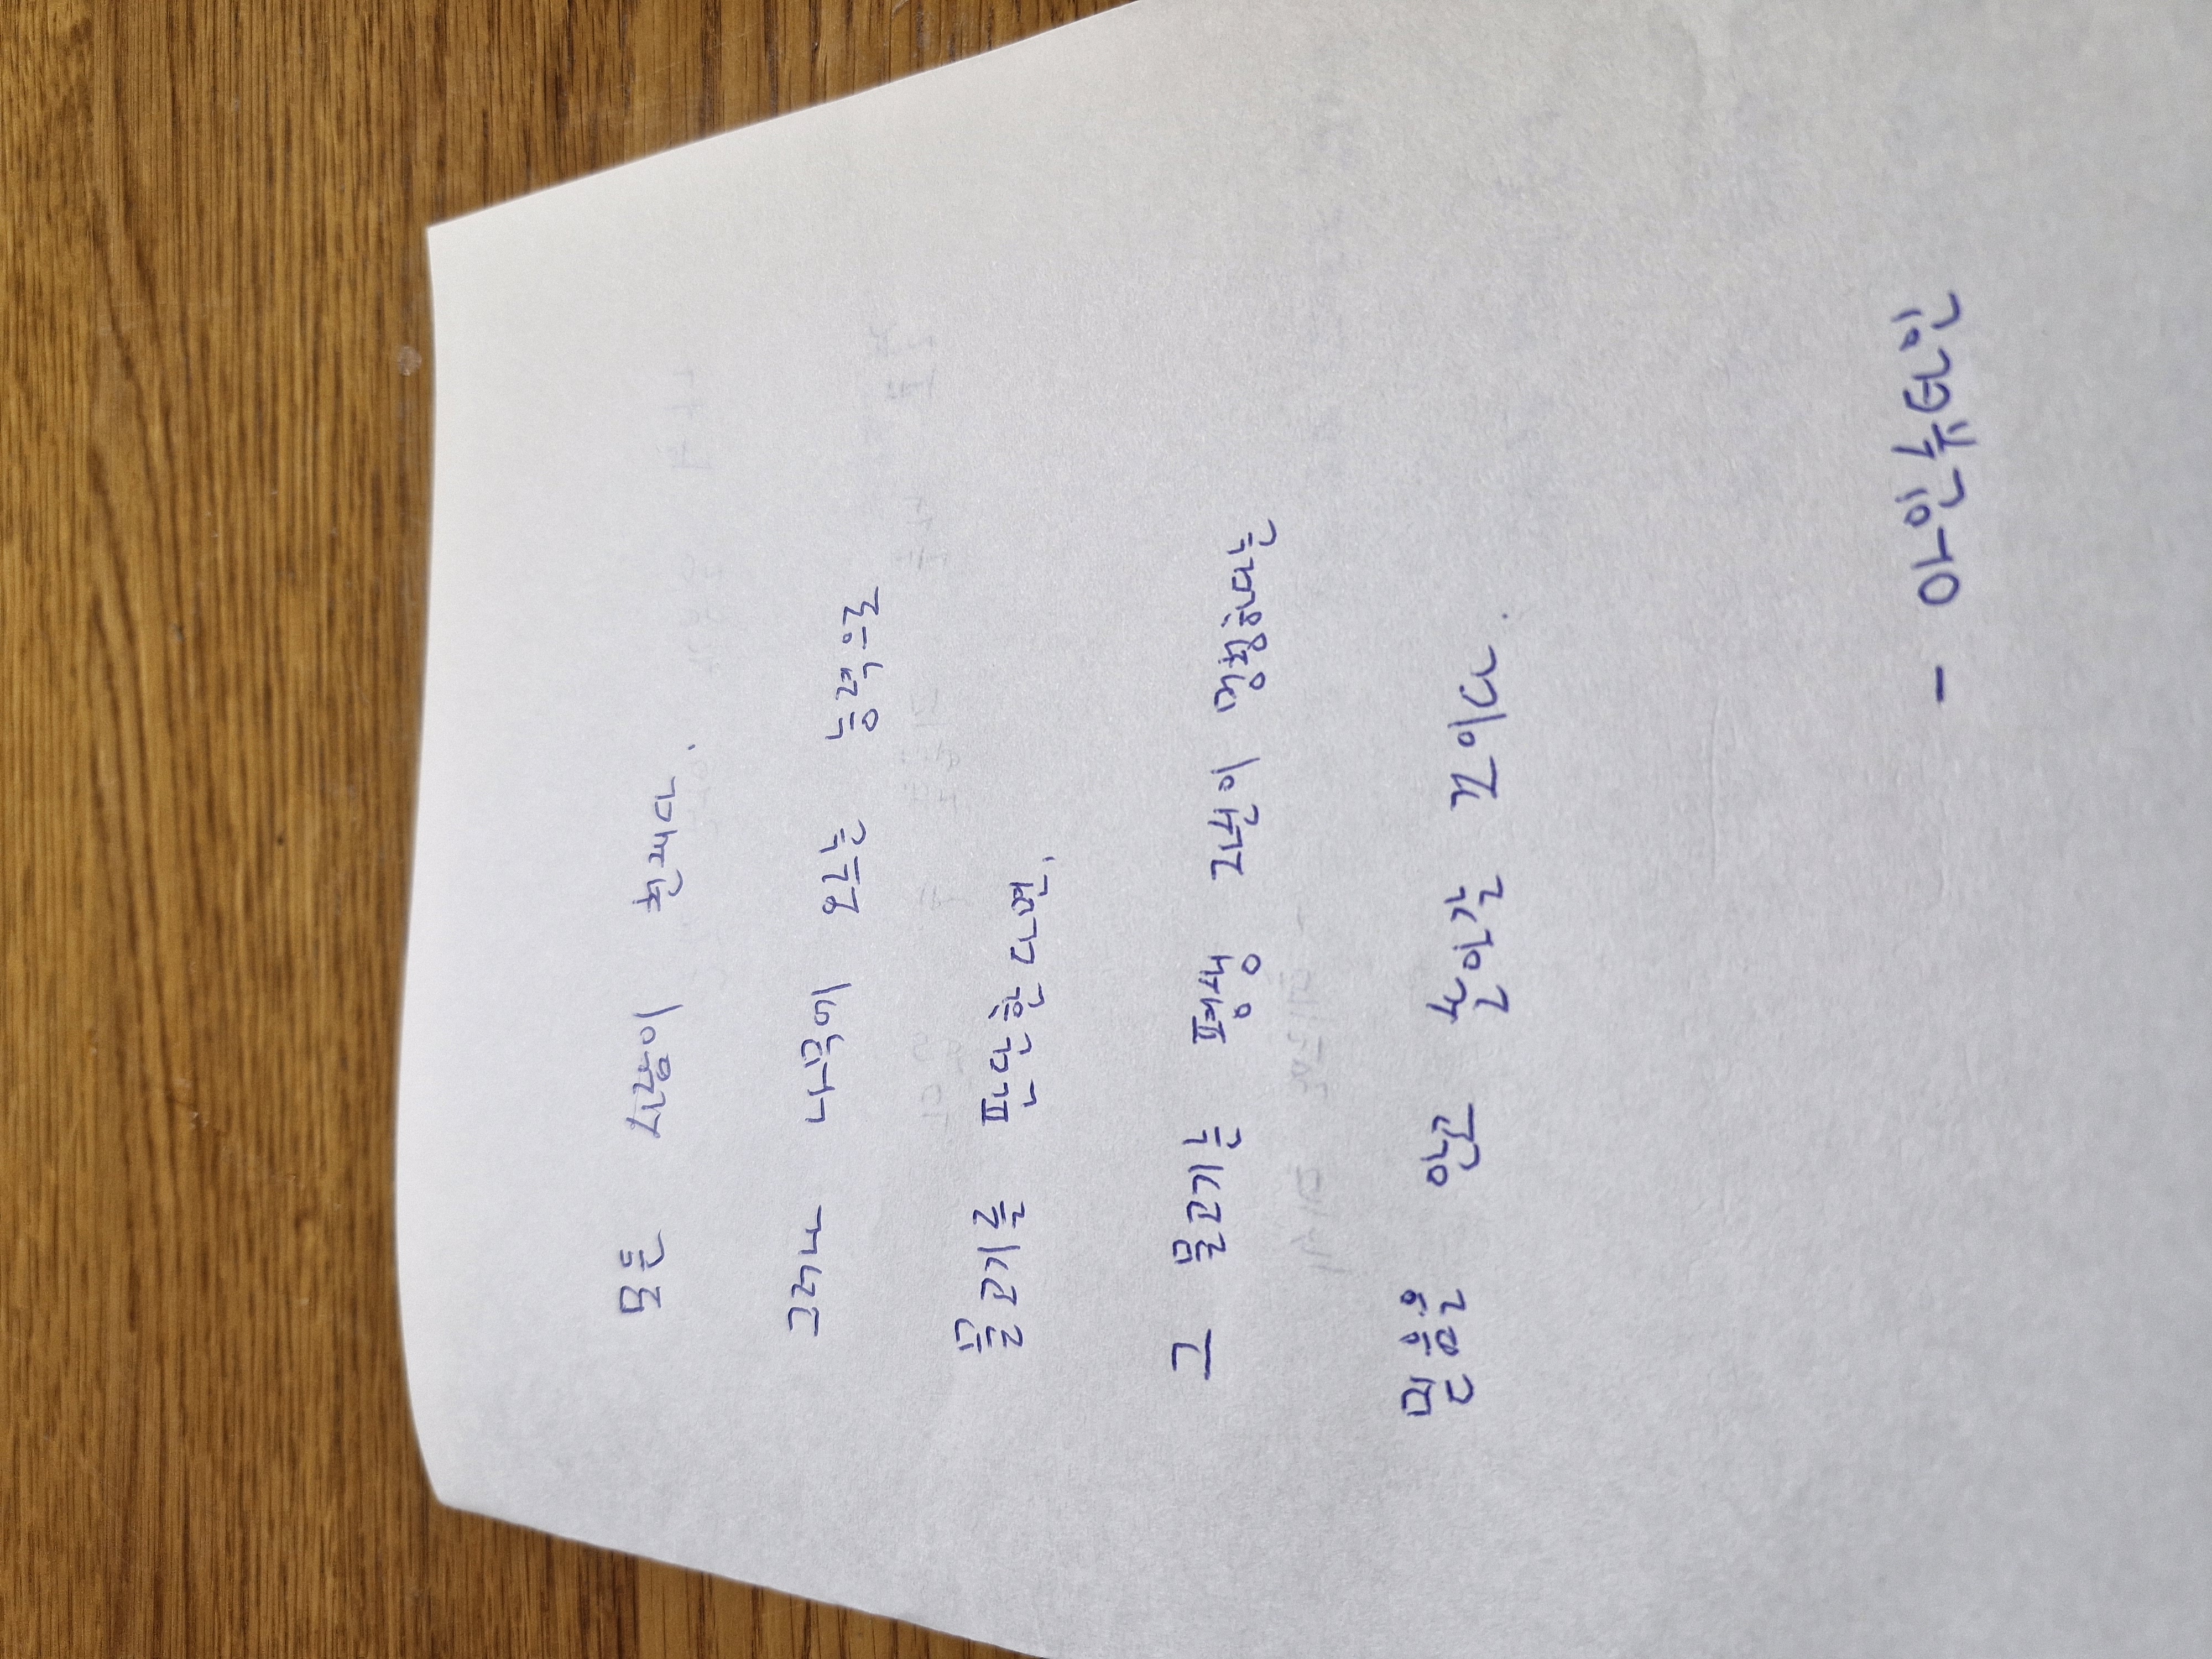 모든 사람이 천재다.
그러나 나무에 오르는 능력으로
물고기를 판단한다면,
그 물고기는 평생 자신이 멍청하다는
믿음을 안고 살아갈 것이다.
- 아인슈타인